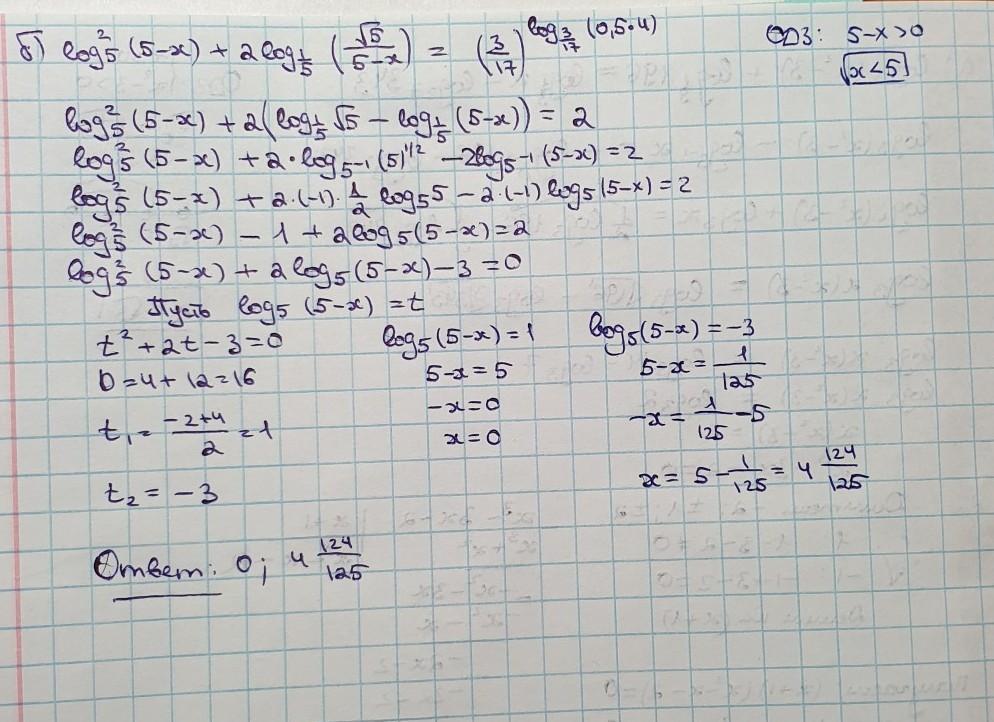 б) log₅²(5-x) + 2log_{1/5}(√5/(5-x)) = (3/17)^{log_{3/17}(0,5·4)} ОДЗ: 5-x>0
x<5
log₅²(5-x) + 2(log_{1/5}√5 - log_{1/5}(5-x)) = 2
log₅²(5-x) + 2·log_{5⁻¹}(5)^{1/2} - 2log_{5⁻¹}(5-x) = 2
log₅²(5-x) + 2·(-1)·1/2 log₅5 - 2·(-1)log₅(5-x) = 2
log₅²(5-x) - 1 + 2log₅(5-x) = 2
log₅²(5-x) + 2log₅(5-x) - 3 = 0
Пусть log₅(5-x) = t
t² + 2t - 3 = 0
D = 4 + 12 = 16
t₁ = (-2+4)/2 = 1
t₂ = -3
log₅(5-x) = 1
5-x = 5
-x = 0
x = 0
log₅(5-x) = -3
5-x = 1/125
-x = 1/125 - 5
x = 5 - 1/125 = 4 124/125
Ответ: 0; 4 124/125